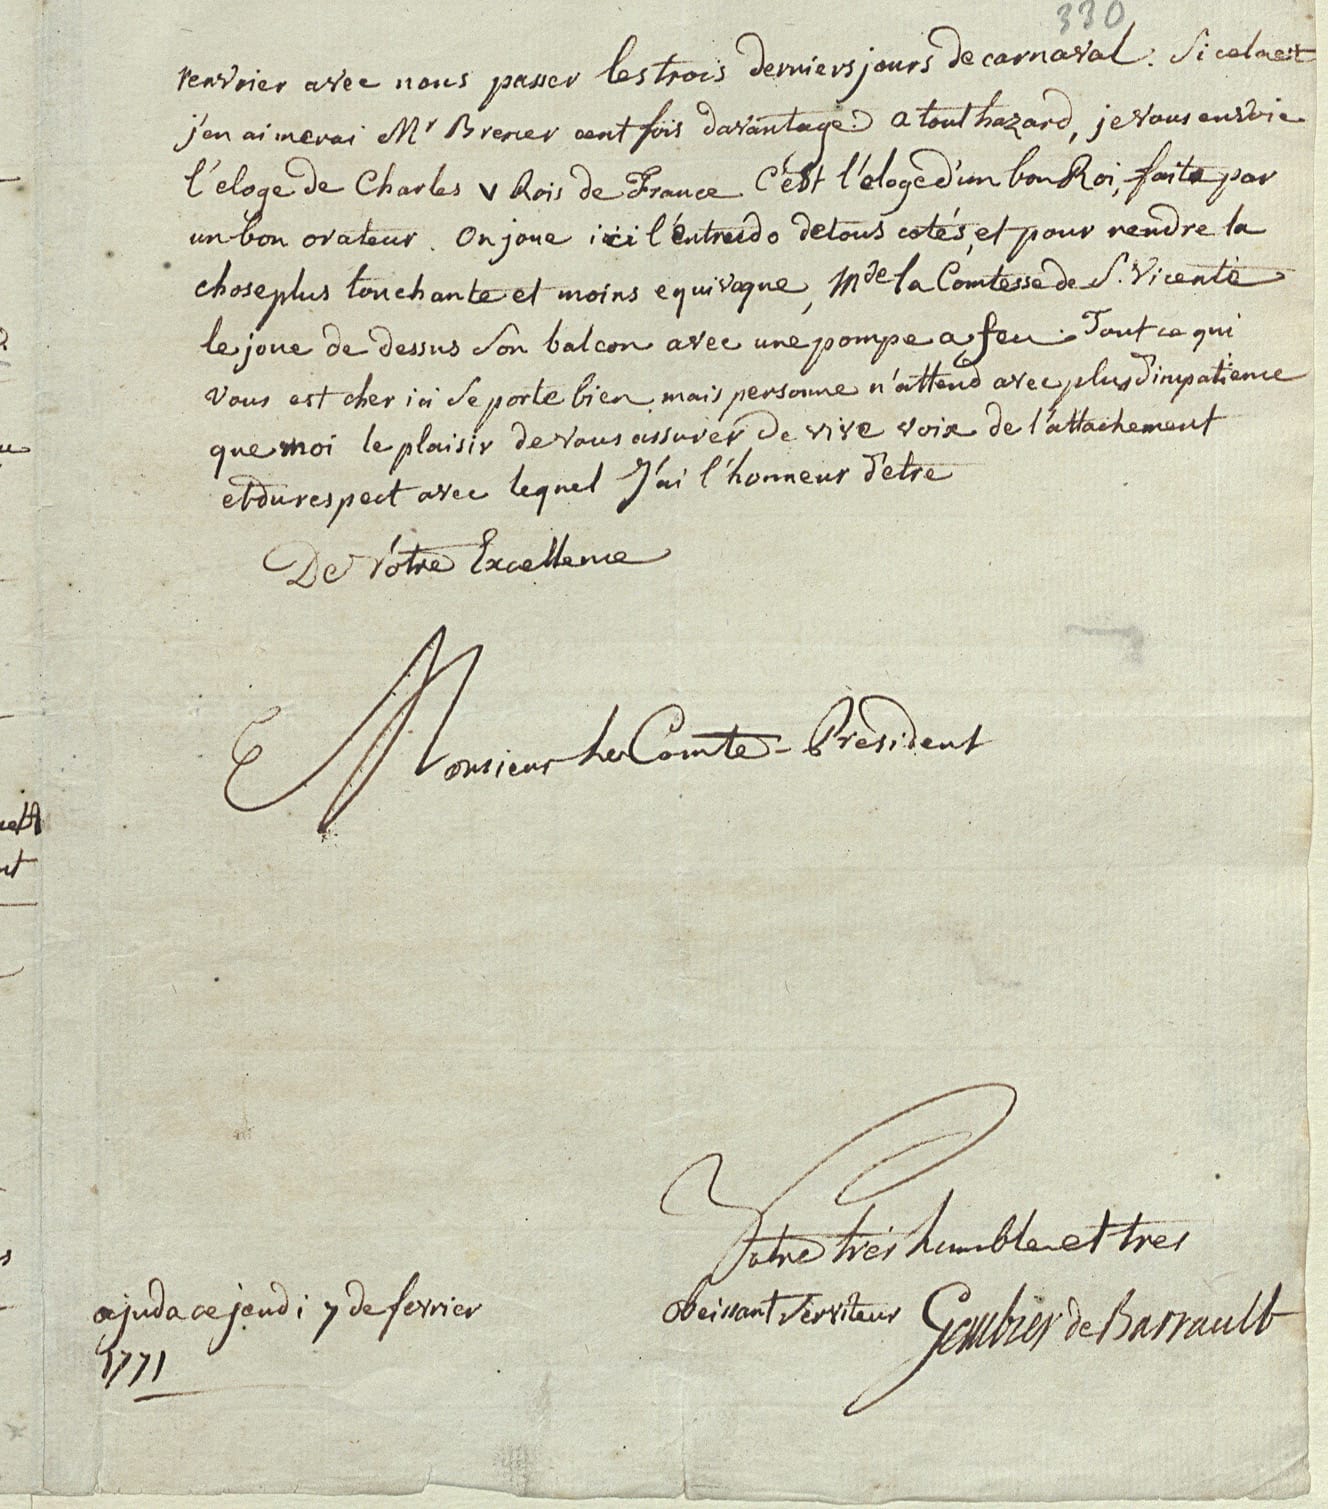 330
avec nous passer les trois derniers jours de carnaval. Si cela est
j'en aimerai Mr cent fois davantage. a tout hazard, je vous envoie
l'eloge de Charles V Rois de France C'est l'eloge d'un bon Roi, faite par
un bon orateur. On joue ici l'entrudo de tous cotés, et pour rendre la
chose plus touchante et moins equivoque, Mde la Comtesse de S. Vicente
le joue de dessus son balcon avec une pompe a feu. Tout ce qui
vous est cher ici se porte bien, mais personne n'attend avec plus d'impatience
que moi le plaisir de vous assurer de vive voix de l'attachement
et du respect avec lequel J'ai l'honneur d'etre
De Vôtre Excellence
Monsieur Le Comte-Président
Votre très humble et tres
ajuda ce jeudi 7 de fevrier
obeissant serviteur de Barrault
1771